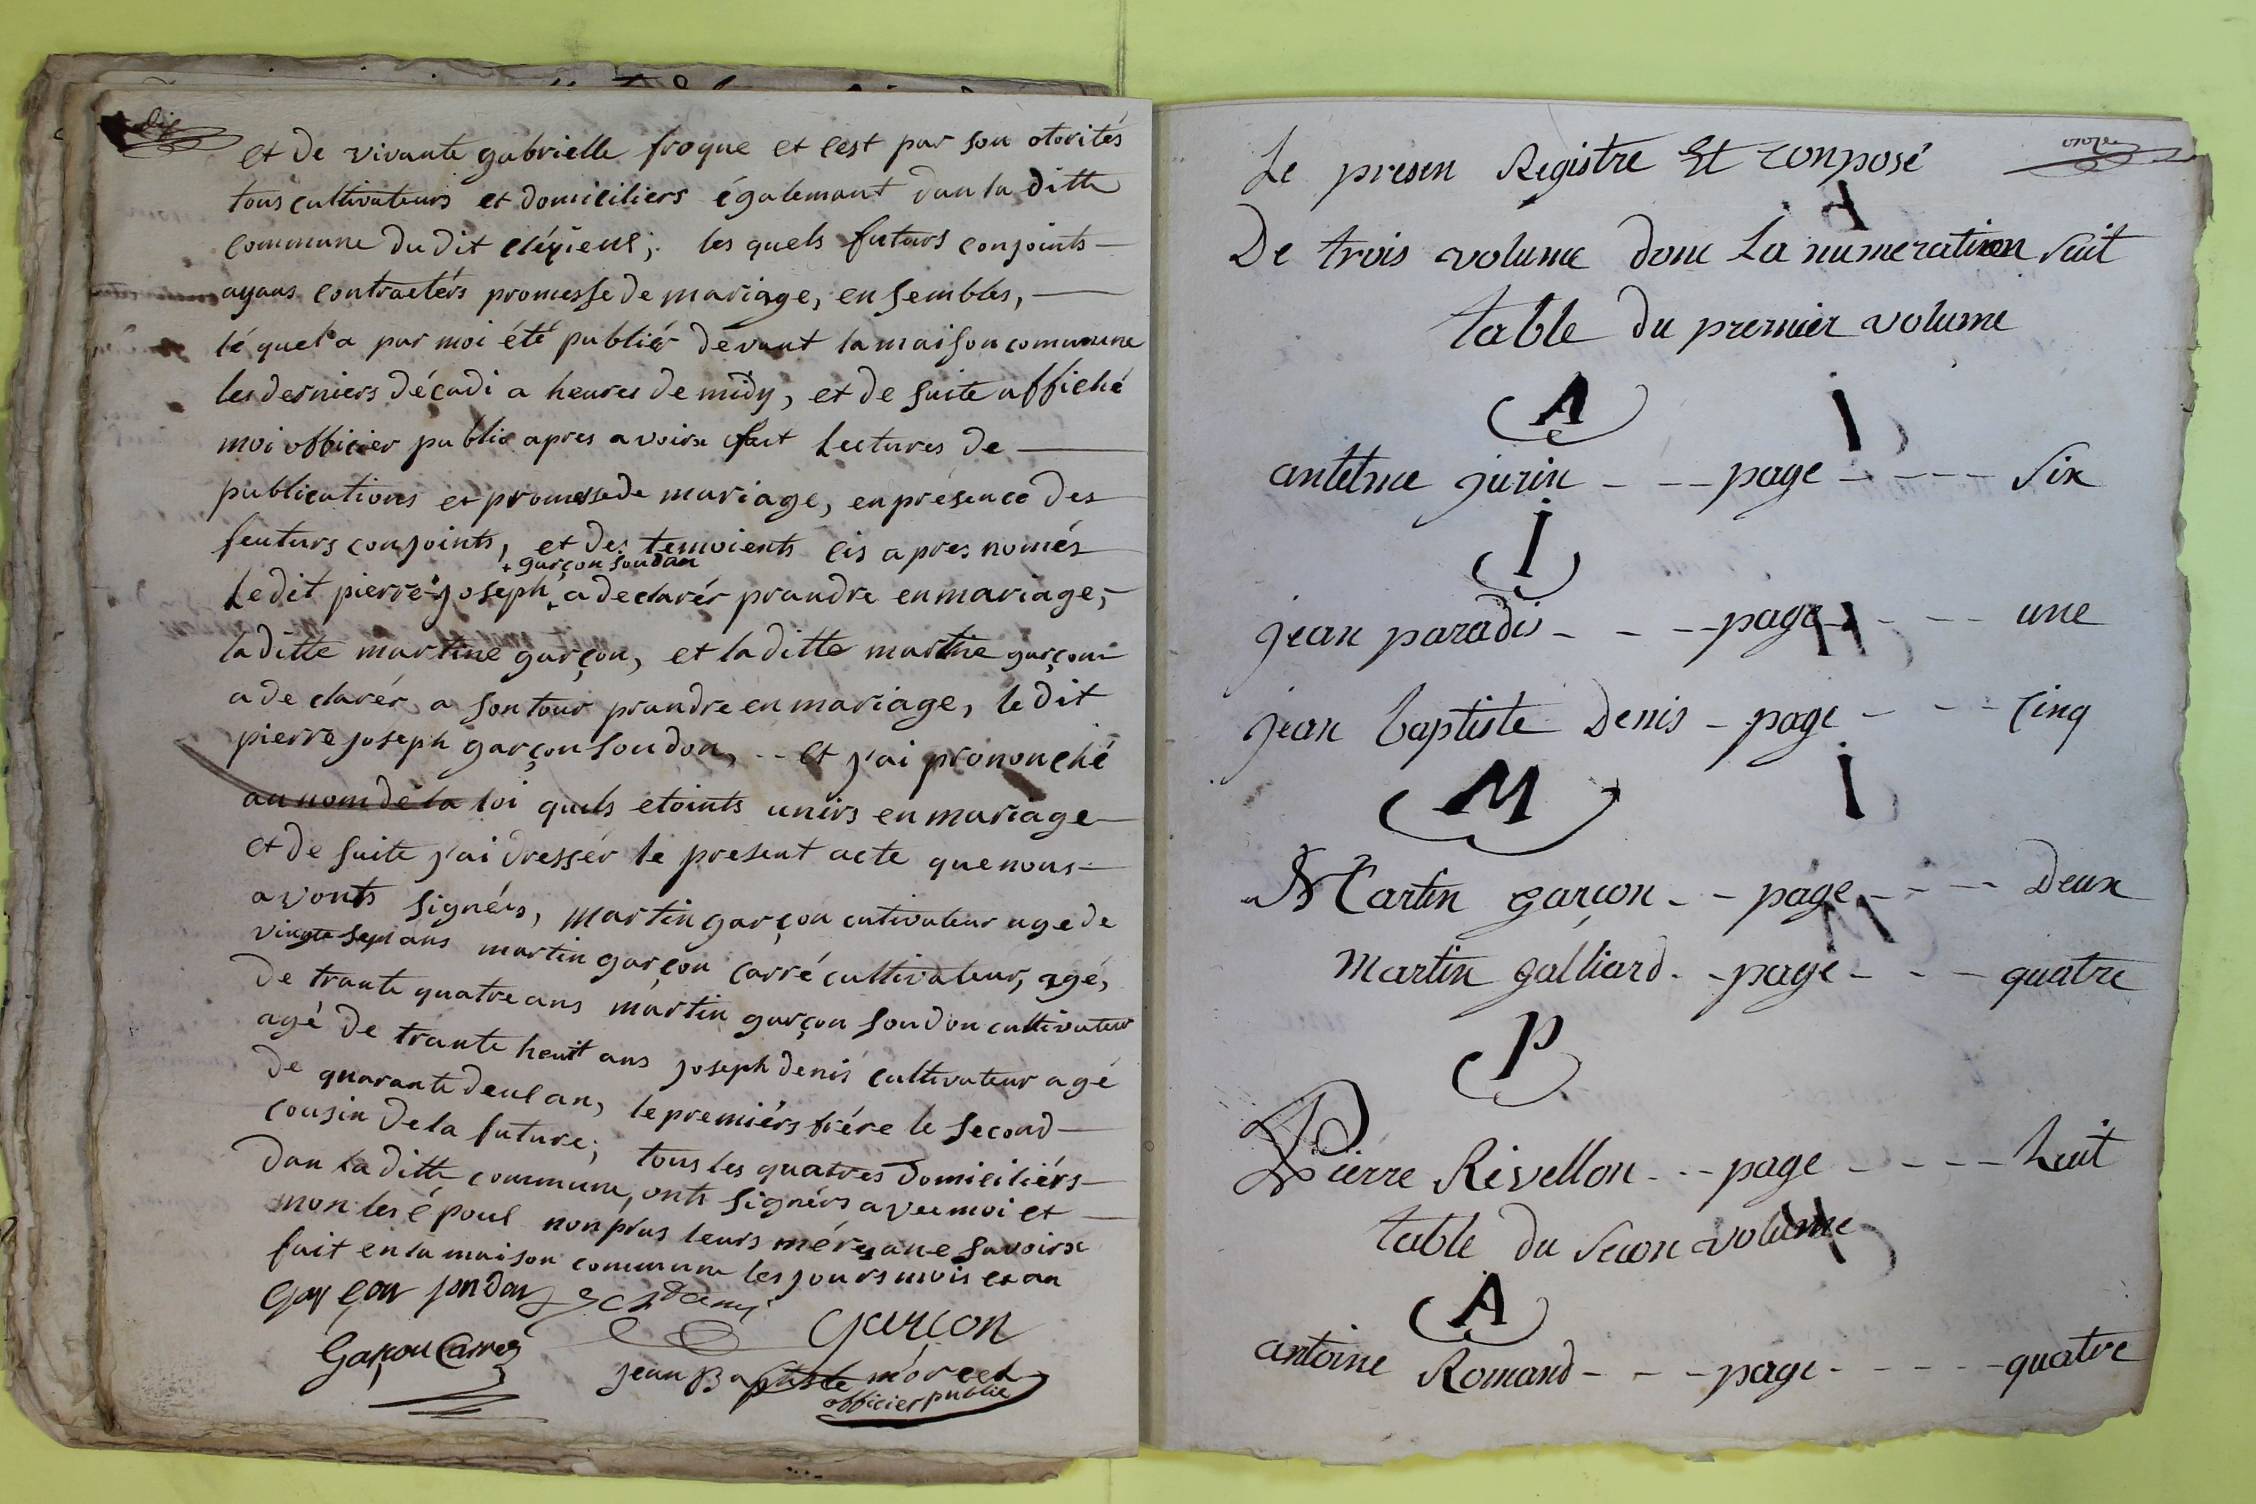 dix
et de vivante gabrielle froque et cest par son otorités
tous cultivateurs et domiciliers égalemant dan la ditte
commune du dit clézieux; les quels futurs conjoints
ayans contractérs promesse de mariage, ensembles,
léquel a par moi été publiér devant la maison commune
les derniers décadi a heures de midy, et de suite affiché
moi officier public apres avoirx fait Lectures de
publications et promesse de mariage, en présence des
feuturs conjoints, et des temoients cis apres només
+ garçon soudan
Le dit pierre joseph + a declarér prandre en mariage,
la ditte martine garçon, et la ditte martine garçon
a declarér a son tour prandre en mariage, le dit
pierre joseph garçon soudon, -- et j'ai prononché
au nom de la loi quels etoints unirs en mariage
et de suite j'ai dressér le present acte que nous
avonts signérs, martin garçon cutivateur age de
vingte sept ans martin garçon carré cultivateur, agé,
de trante quatre ans martin garçon soudon cultivateur
agé de trante heuit ans joseph denis cultivateur agé
de quarante deul an, le premiérs frére le second
cousin de la future; tous les quatres domiciliérs
dan la ditte commune, onts signérs avec moi et
non les époul non plus leurs mére, ane savoirx
fait en la maison commune les jours mois et an
garçon sondon
garçon
Garçon Carrez
jean Baptiste morcel
officier public
onze
Le presen Registre Et conposé
De trois volume donc La numeration suit
table du premier volume
A
antelme jurin - - - page - - - - six
I
jean paradis - - - page - - - - une
jean baptiste Denis - page - - - cinq
M
Martin garçon - - page - - - Deux
Martin galliard - - page - - - quatre
P
Pierre Rivellon - - page - - - - huit
table du secon volume
A
antoine Romand - - - page - - - - - quatre